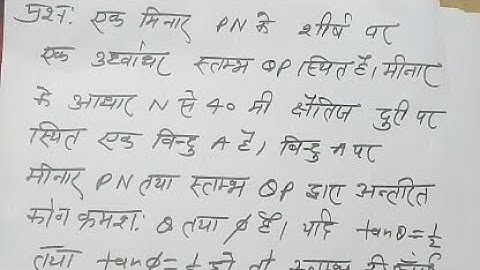 प्रश्न: एक मिनार PN के शीर्ष पर
एक उर्ध्वाधर स्तम्भ QP स्थित है। मीनार
के आधार N से 40 मी क्षैतिज दुरी पर
स्थित एक बिन्दु A है, बिन्दु A पर
मीनार PN तथा स्तम्भ QP द्वारा अन्तरित
कोण क्रमश: θ तथा ϕ है, यदि tanθ=1/2
तथा tanϕ=1/ हो तो स्तम्भ की